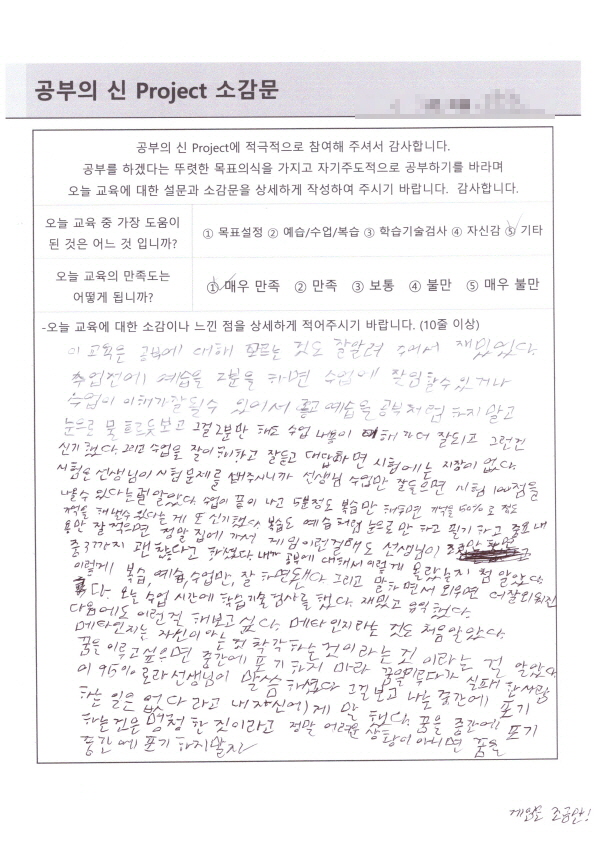 공부의 신 Project 소감문
공부의 신 Project에 적극적으로 참여해 주셔서 감사합니다.
공부를 하겠다는 뚜렷한 목표의식을 가지고 자기주도적으로 공부하기를 바라며
오늘 교육에 대한 설문과 소감문을 상세하게 작성하여 주시기 바랍니다. 감사합니다.
오늘 교육 중 가장 도움이
된 것은 어느 것 입니까?
① 목표설정 ② 예습/수업/복습 ③ 학습기술검사 ④ 자신감 ⑤ 기타
오늘 교육의 만족도는
어떻게 됩니까?
① 매우 만족 ② 만족 ③ 보통 ④ 불만 ⑤ 매우 불만
-오늘 교육에 대한 소감이나 느낀 점을 상세하게 적어주시기 바랍니다. (10줄 이상)
이 교육은 공부에 대해 모르는 것도 잘알려 주어서 재밌었다.
수업전에 예습을 2분을 하면 수업에 잘임할수 있거나
수업이 이해가잘될수 있어서 좋고 예습을 공부처럼 하지말고
눈으로 물 흐르듯보고 그걸 2분만 해도 수업 내용이 이해가 더 잘되고 그런건
신기했다. 그리고 수업을 잘이해하고 잘듣고 대답하면 시험에는 지장이 없다.
시험은 선생님이 시험문제를 내주시니까 선생님 수업만 잘들으면 시험 100점을
나올수 있다는걸 알았다. 수업이 끝이 나고 5분정도 복습만 해주면 기억을 50%로 정도
기억을 해낼수있다는게 또 신기했다. 복습도 예습처럼 눈으로만 하고 필기하고 중요내
용만 잘적으면 정말 집에 가서 게임이런걸해도 선생님이
중3까지 괜찮다고 하셨다. 내가 공부에 대해서 이렇게 몰랐는지 첨 알았다.
이렇게 복습, 예습, 수업만, 잘 하면된다. 그리고 말하면서 외우면 더잘외워진
다. 오늘 수업 시간에 학습기술검사를 했다. 재밌고 유익했다.
다음에도 이런건 해보고싶다. 메타인지라는 것도 처음알았다.
메타인지는 자신이 아는척 착각하는것이라는 것 이라는 걸 알았다.
꿈을 이루고싶으면 중간에 포기하지 마라 꿈을이루다가 실패한사람
이 95% 로라 선생님이 말씀하셨다 그걸보고 나는 중간에 포기
하는 일은 없다 라고 내 자신에게 말했다. 꿈을 중간에 포기
하는것은 멍청한 짓이라고 정말 어려운 상황이 아니면 꿈을
중간에 포기하지말자
게임은 조금만!